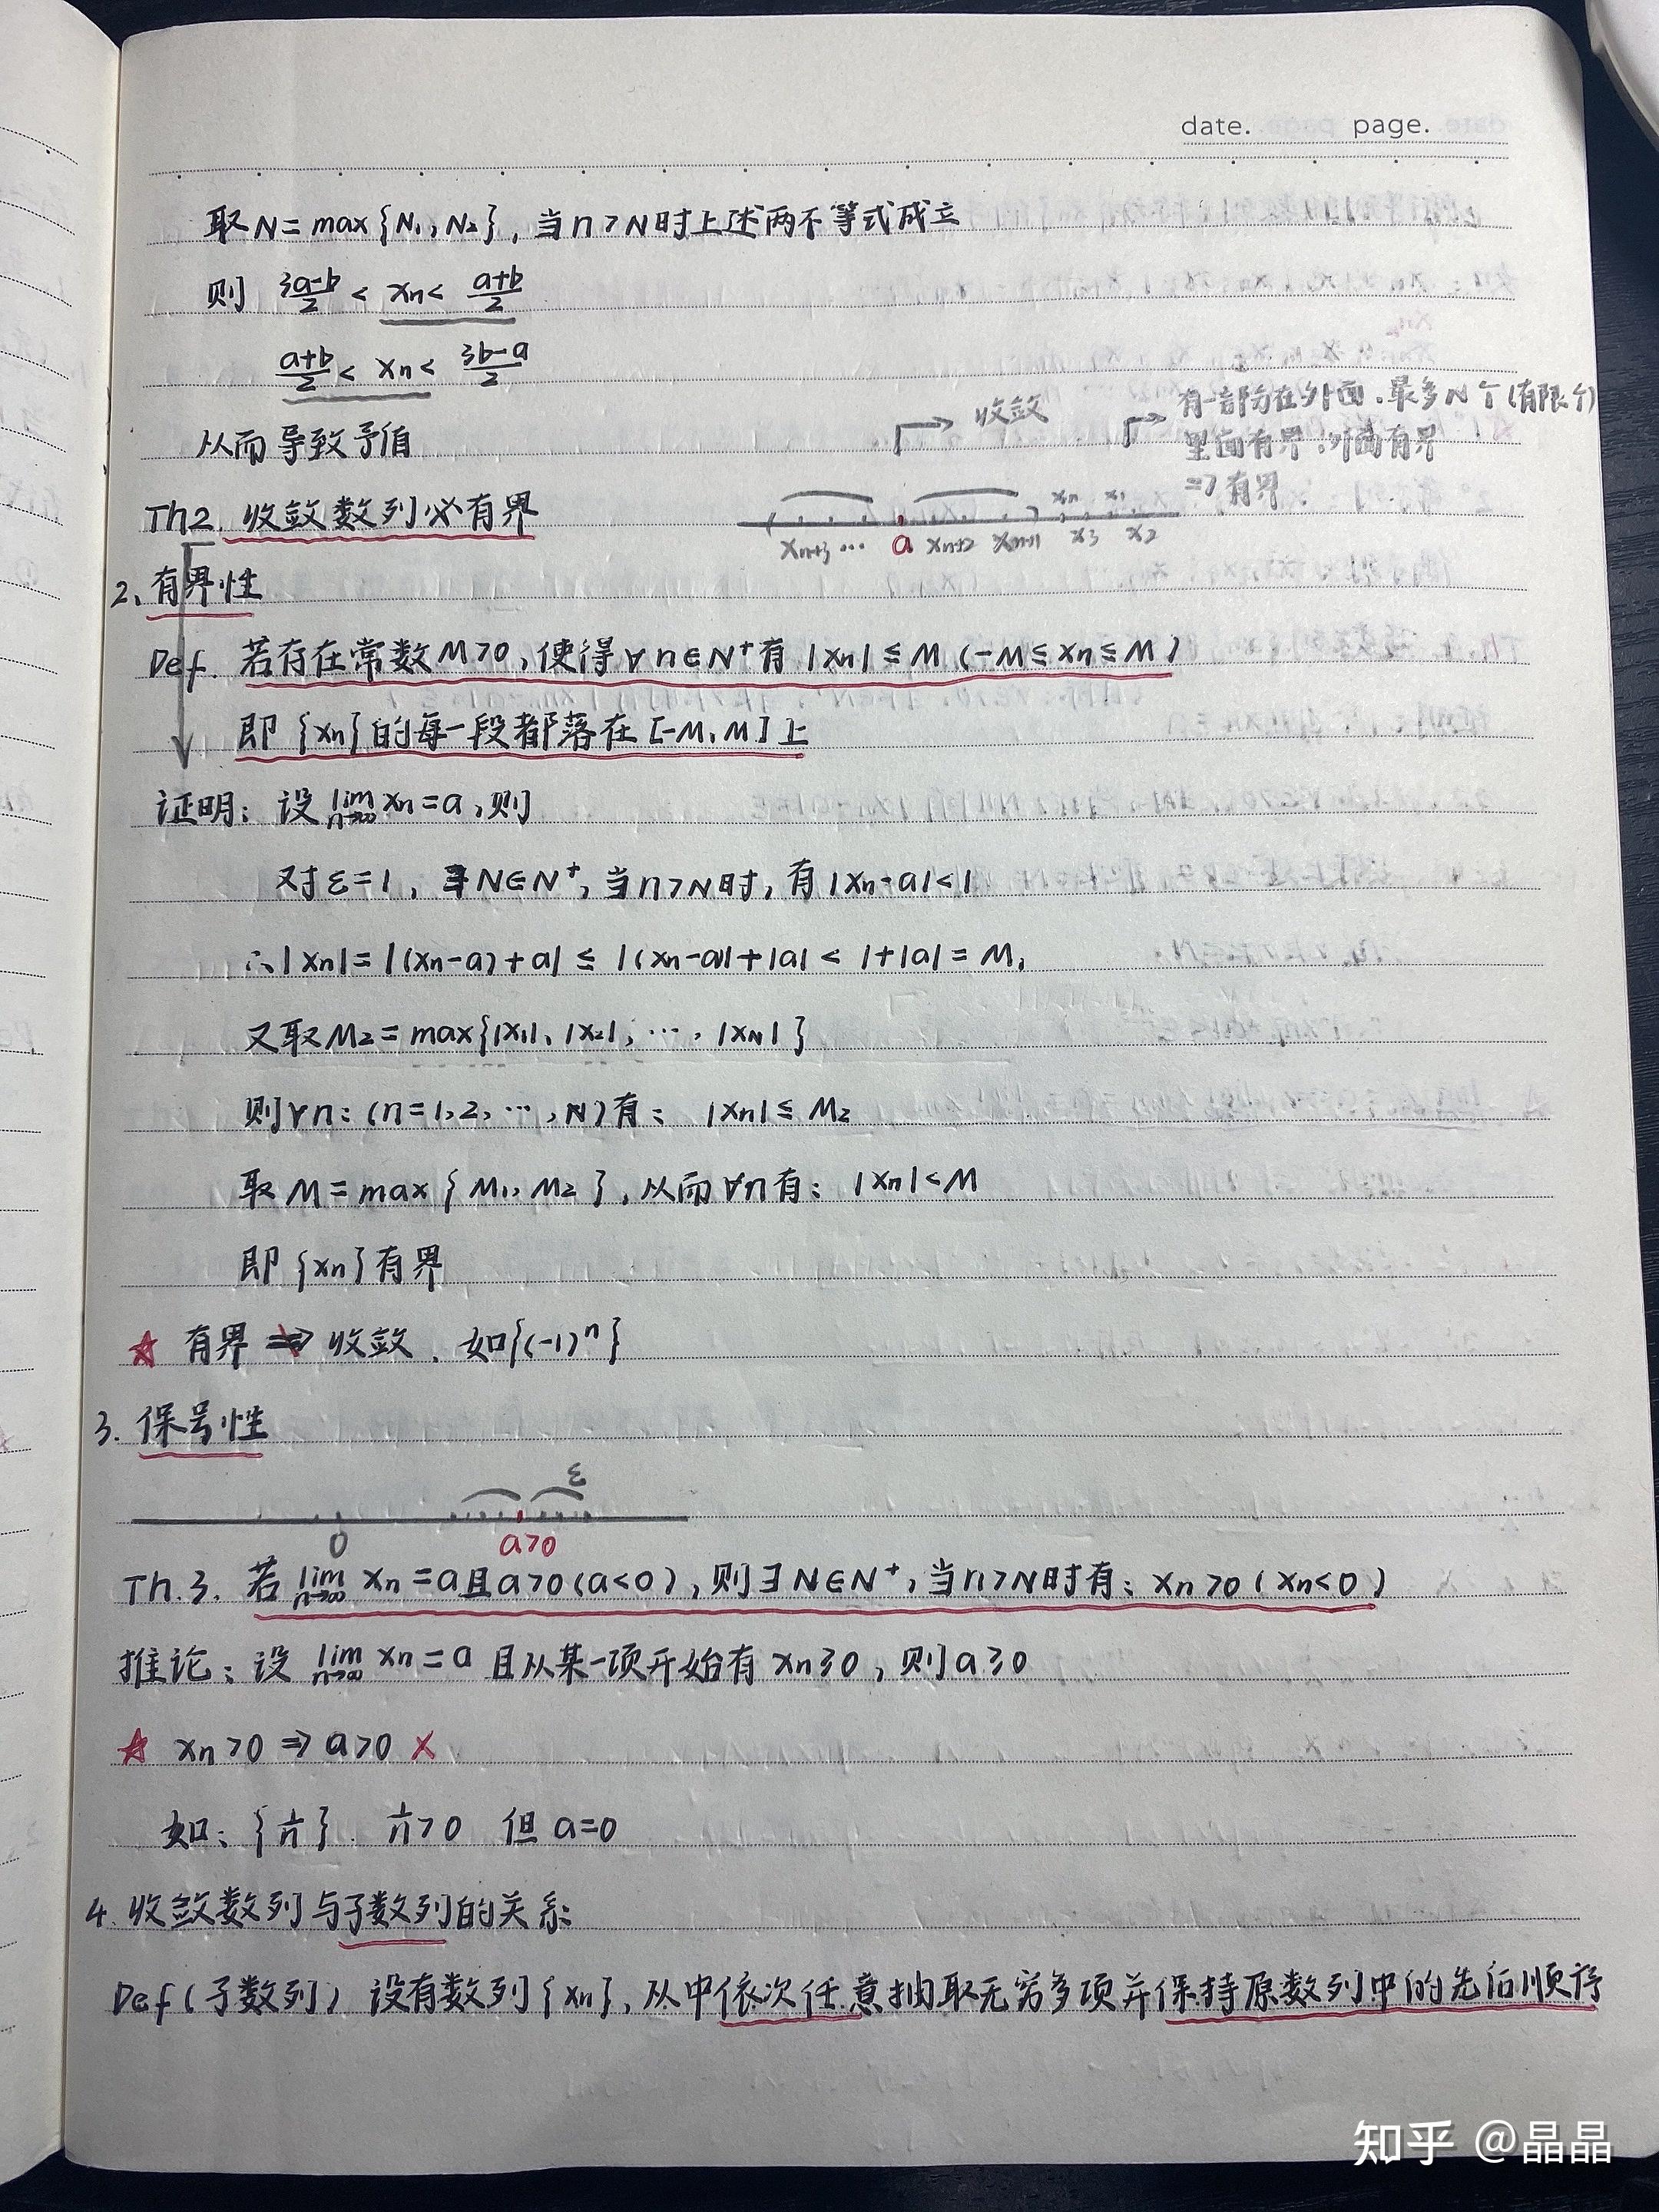 date. page.
取N=max{N₁,N₂},当n>N时上述两不等式成立
则 3a-b/2 < xn < a+b/2
a+b/2 < xn < 3b-a/2
从而导致矛盾
收敛
有一部分在外面.最多N个(有限个)
里面有界,外面有界
=>有界
Th2. 收敛数列必有界
xn x₁
xn+3 … a xn+2 xn+1 x₃ x₂
2、有界性
Def. 若存在常数M>0,使得∀n∈N⁺有 |xn|≤M (-M≤xn≤M)
即{xn}的每一段都落在[-M,M]上
证明:设 lim n→∞ xn=a,则
对ε=1, ∃N∈N⁺,当n>N时,有|xn-a|<1
∴|xn|=|(xn-a)+a| ≤ |(xn-a)|+|a| < 1+|a|=M₁
又取M₂=max{|x₁|、|x₂|,…,|xN|}
则∀n:(n=1,2,…,N)有: |xn|≤M₂
取M=max{M₁,M₂},从而∀n有: |xn|<M
即{xn}有界
☆ 有界 ⇏ 收敛、如{(-1)ⁿ}
3. 保号性
ε
0 a>0
Th.3. 若 lim n→∞ xn=a且a>0(a<0),则∃N∈N⁺,当n>N时有:xn>0(xn<0)
推论:设 lim n→∞ xn=a 且从某一项开始有 xn≥0,则a≥0
☆ xn>0 => a>0 ×
如:{1/n}. 1/n>0 但 a=0
4. 收敛数列与子数列的关系
Def(子数列) 设有数列{xn},从中依次任意抽取无穷多项并保持原数列中的先后顺序
知乎 @晶晶